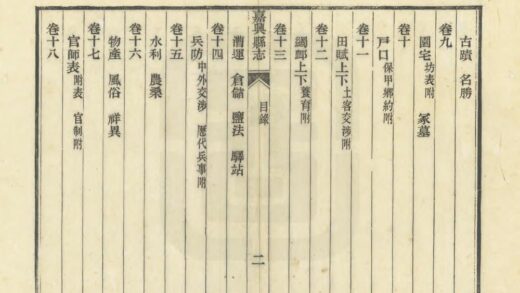 古蹟 名勝
卷九
園宅坊表附 冢墓
卷十
戶口保甲鄉約附
卷十一
田賦上下土客交涉附
卷十二
蠲卹上下養育附
卷十三
嘉興縣志 目錄 二
漕運 倉儲 鹽法 驛站
卷十四
兵防中外交涉 厯代兵事附
卷十五
水利 農桑
卷十六
物產 風俗 祥異
卷十七
官師表附表 官制附
卷十八